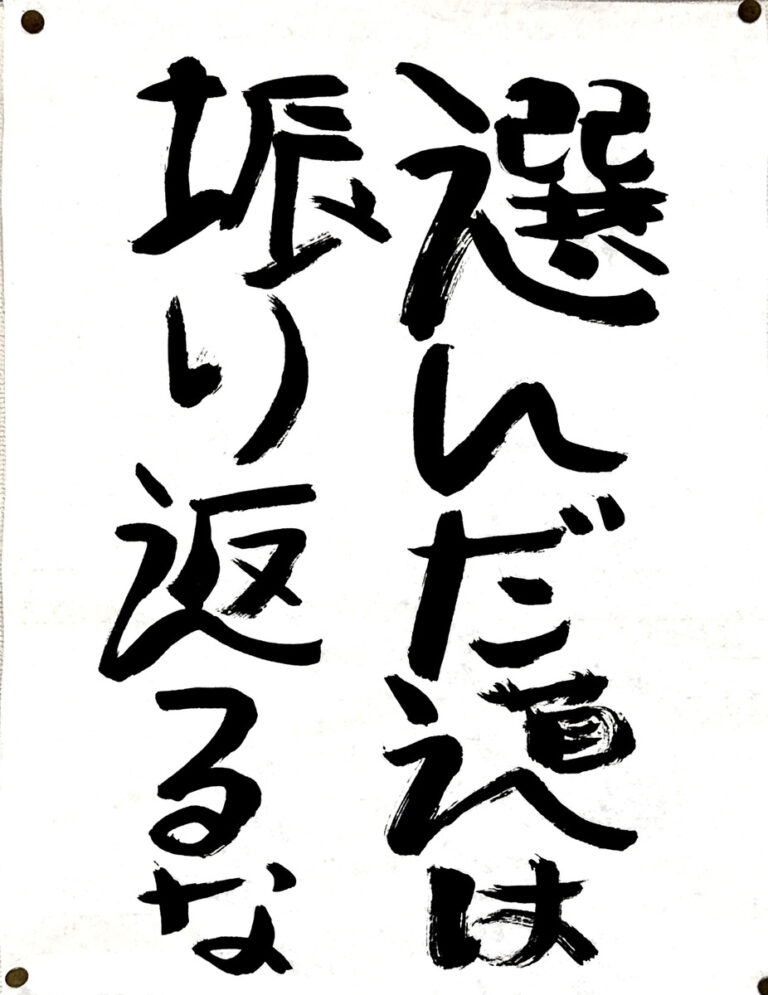 選んだ道は
振り返るな